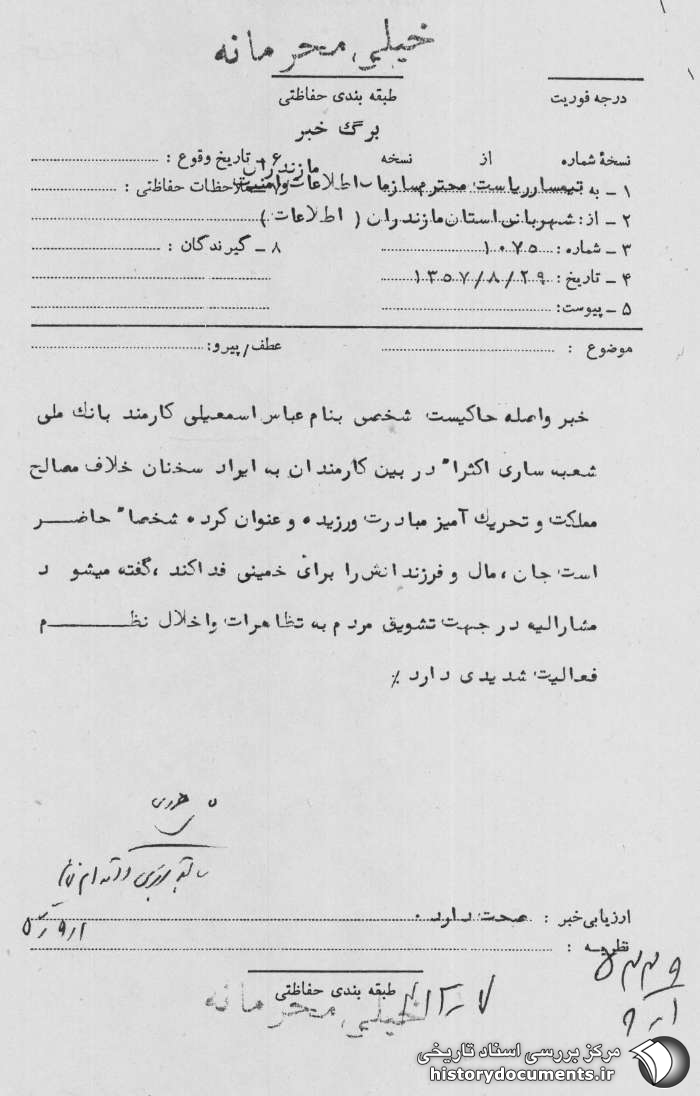 خیلی محرمانه
طبقه بندی حفاظتی
درجه فوریت
برگ خبر
نسخهٔ شماره از نسخه
۶ ـ تاریخ وقوع :
۱ ـ به تیمسار ریاست محترم سازمان اطلاعات و امنیت مازندران
۷ ـ ملاحظات حفاظتی :
۲ ـ از : شهربانی استان مازندران ( اطلاعات )
۳ ـ شماره : ۱۰۷۵
۸ ـ گیرندگان :
۴ ـ تاریخ : ۱۳۵۷/۸/۲۹
۵ ـ پیوست:
موضوع :
عطف/پیرو:
خبر واصله حاکیست شخصی بنام عباس اسمعیلی کارمند بانک ملی
شعبه ساری اکثرا" در بین کارمندان به ایراد سخنان خلاف مصالح
مملکت و تحریک آمیز مبادرت ورزیده و عنوان کرده شخصا" حاضـــر
است جان ، مال و فرزندانش را برای خمینی فدا کند ، گفته میشود
مشارالیه در جهت تشویق مردم به تظاهرات و اخلال نظـــــم
فعالیت شدیدی دارد ٪
ارزیابی خبر : صحت دارد .
نظریه :
طبقه بندی حفاظتی
خیلی محرمانه
مرکز بررسی اسناد تاریخی
historydocuments.ir